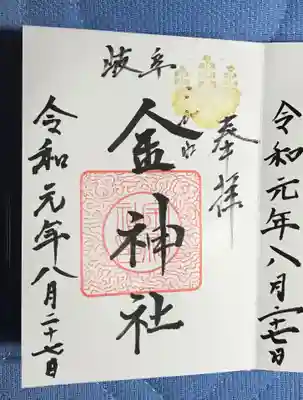 令和元年八月二十七日
奉拝
岐阜
こがね
金神社
令和元年八月二十七日